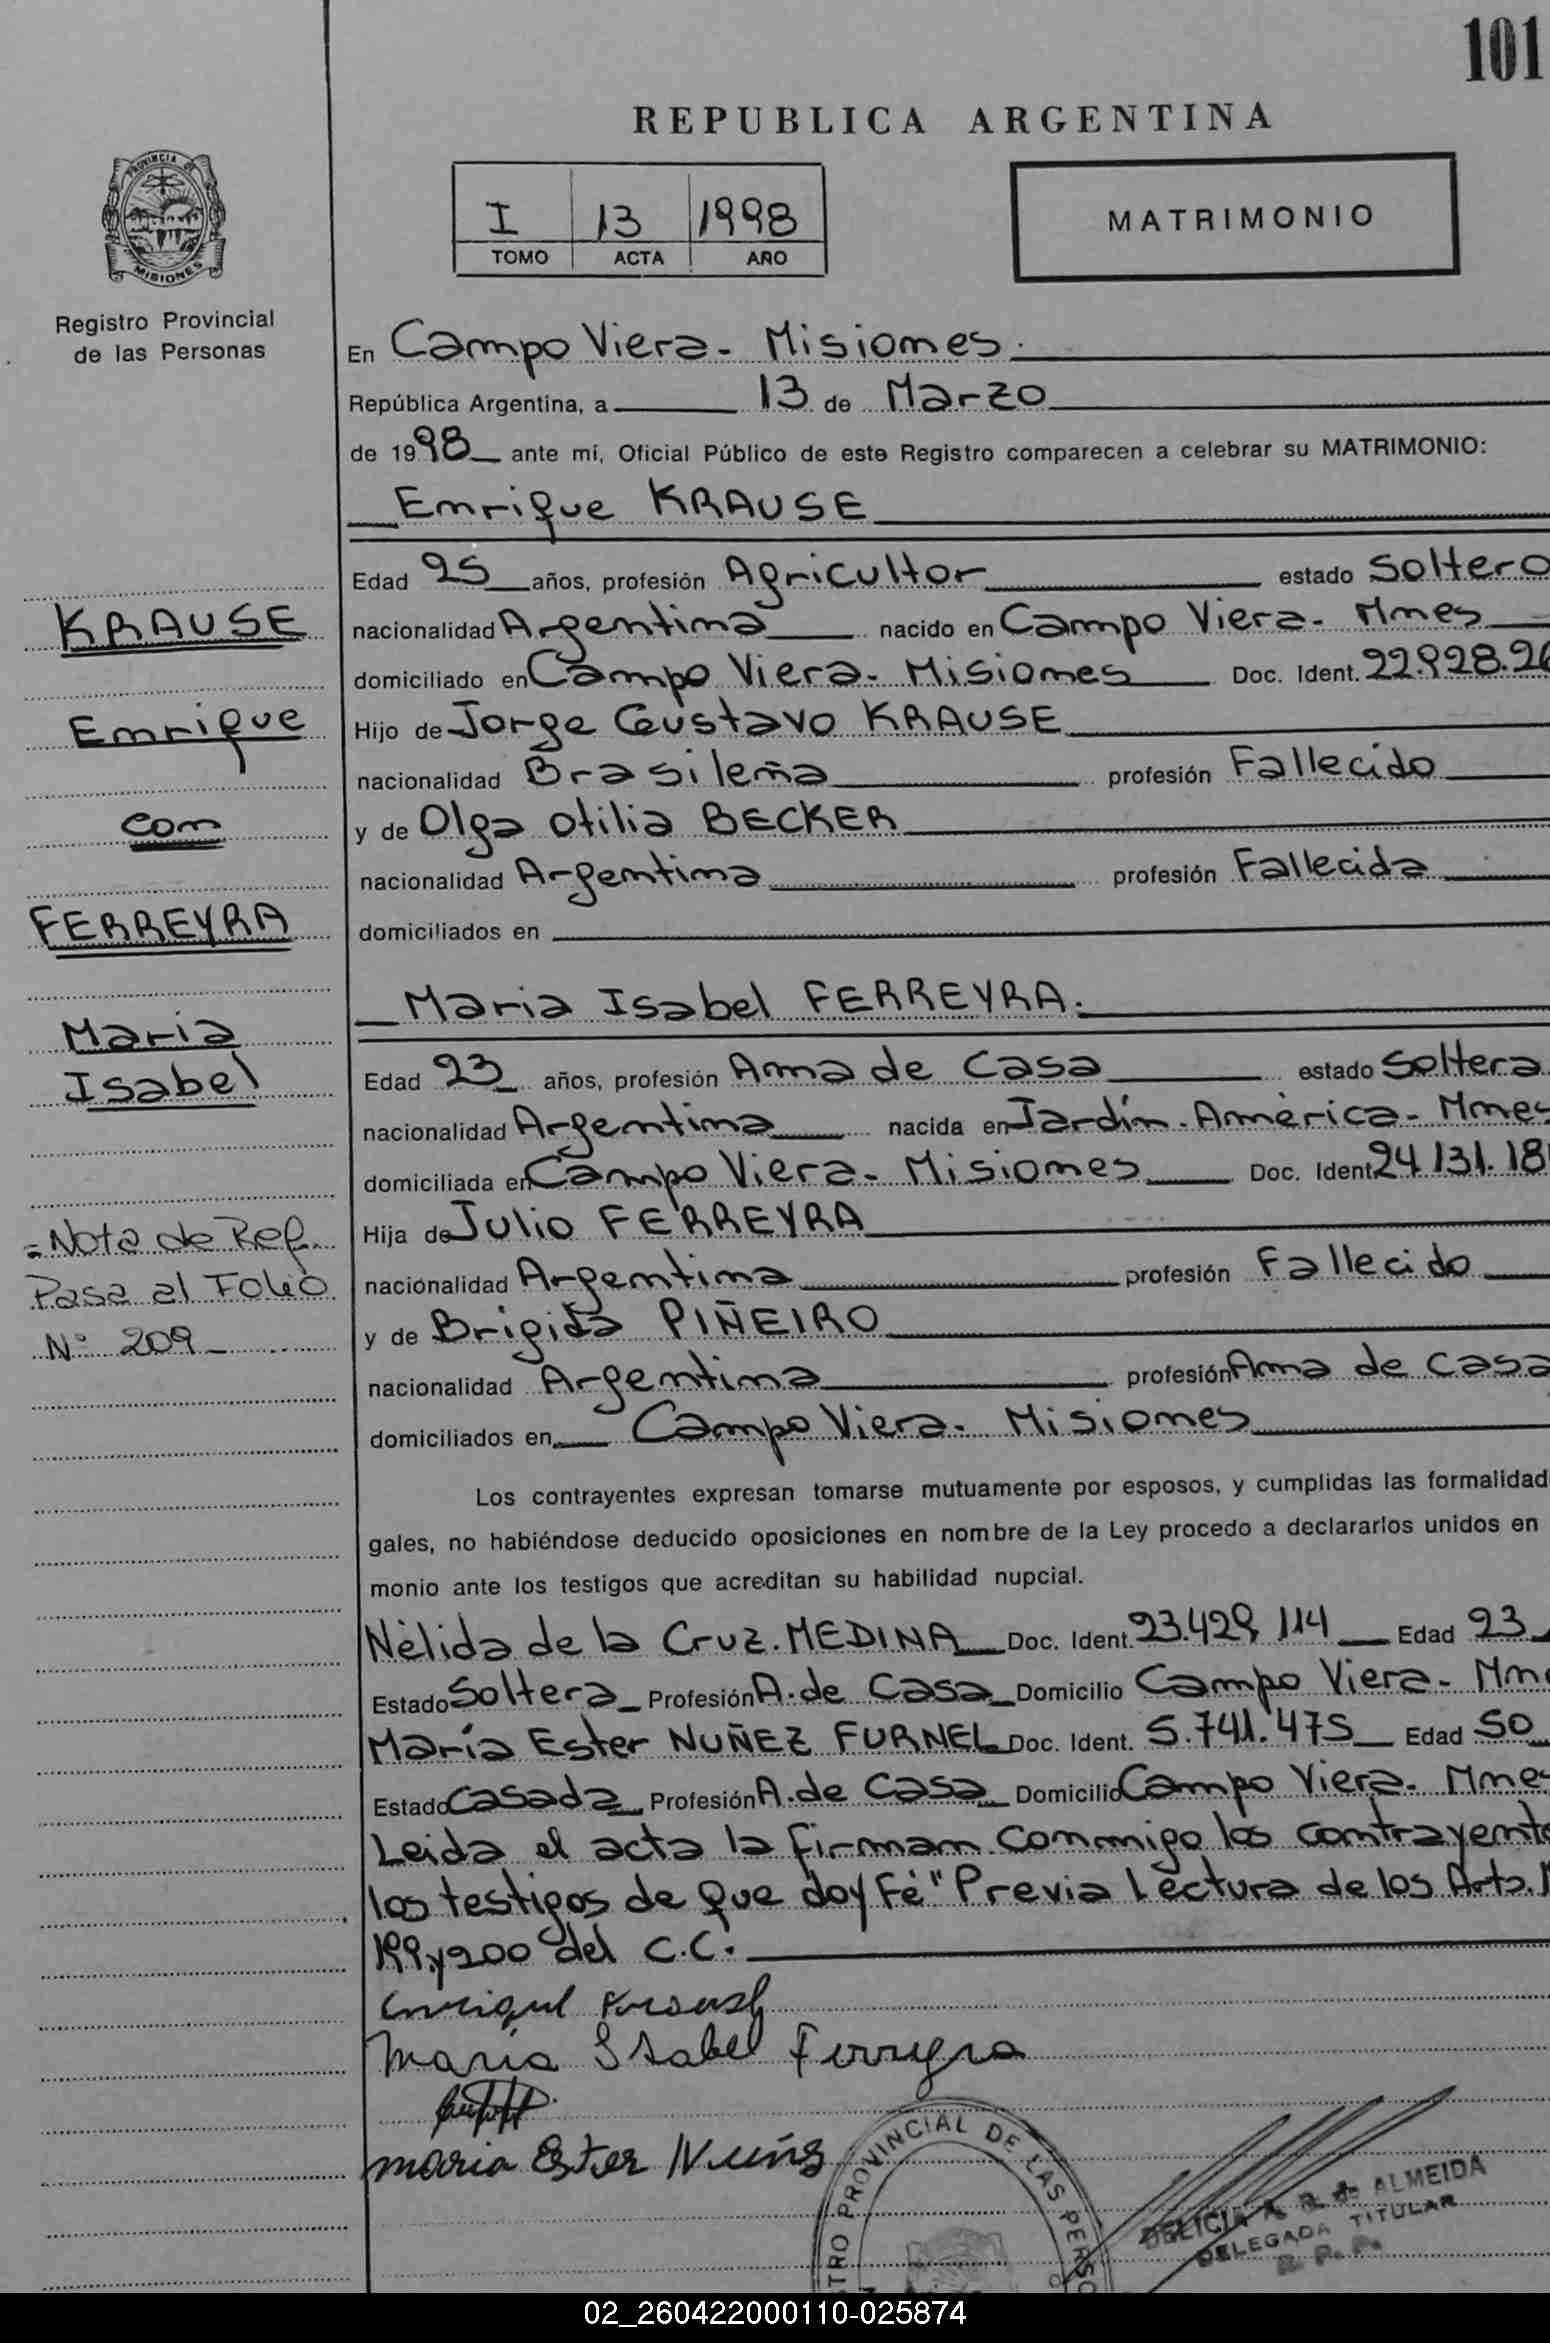 101
REPUBLICA ARGENTINA
PROVINCIA DE
MISIONES
I 13 1998
TOMO ACTA AÑO
MATRIMONIO
Registro Provincial
de las Personas
En Campo Viera - Misiones.
República Argentina, a 13 de Marzo
de 1998 ante mí, Oficial Público de este Registro comparecen a celebrar su MATRIMONIO:
Enrique KRAUSE
Edad 25 años, profesión Agricultor estado Soltero
KRAUSE
nacionalidad Argentina nacido en Campo Viera - Mnes
domiciliado en Campo Viera - Misiones Doc. Ident. 22.928.26
Enrique
Hijo de Jorge Gustavo KRAUSE
nacionalidad Brasileña profesión Fallecido
con
y de Olga Otilia BECKER
nacionalidad Argentina profesión Fallecida
FERREYRA
domiciliados en
Maria Isabel FERREYRA.
Maria
Isabel
Edad 23 años, profesión Ama de Casa estado Soltera
nacionalidad Argentina nacida en Jardín América - Mnes
domiciliada en Campo Viera - Misiones Doc. Ident 24.131.18
Hija de Julio FERREYRA
= Nota de Ref.
Pasa al Folio
Nº 209
nacionalidad Argentina profesión Fallecido
y de Brigida PIÑEIRO
nacionalidad Argentina profesión Ama de Casa
domiciliados en Campo Viera - Misiones
Los contrayentes expresan tomarse mutuamente por esposos, y cumplidas las formalidad
gales, no habiéndose deducido oposiciones en nombre de la Ley procedo a declararlos unidos en
monio ante los testigos que acreditan su habilidad nupcial.
Nélida de la Cruz MEDINA Doc. Ident. 23.429.114 Edad 23
Estado Soltera Profesión A. de Casa Domicilio Campo Viera - Mn
María Ester NUÑEZ FURNEL Doc. Ident. 5.741.475 Edad 50
Estado Casada Profesión A. de Casa Domicilio Campo Viera - Mnes
Leida el acta la firman conmigo los contrayente
los testigos de que doy Fé "Previa Lectura de los Arts.
199 y 200 del C.C.
Enrique Krause
Maria Isabel Ferreyra
Maria Ester Nuñez
STRO PROVINCIAL DE LAS PERSO
DELICIA A. R. de ALMEIDA
DELEGADA TITULAR
R. P. P.
02_260422000110-025874